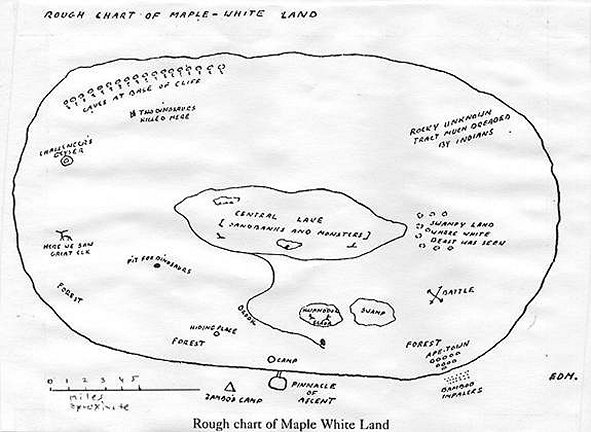 ROUGH CHART OF MAPLE-WHITE LAND
CAVES AT BASE OF CLIFF
TWO DINOSAURS
KILLED HERE
CHALLENGER'S
GEYSER
ROCKY UNKNOWN
TRACT MUCH DREADED
BY INDIANS
CENTRAL LAKE
[SANDBANKS AND MONSTERS]
SWAMPY LAND
WHERE WHITE
BEAST WAS SEEN
HERE WE SAW
GREAT ELK
PIT FOR DINOSAURS
FOREST
BROOK
BATTLE
IGUANODON
GLADE
SWAMP
HIDING PLACE
FOREST
FOREST
APE-TOWN
CAMP
PINNACLE
OF
ASCENT
ZAMBO'S CAMP
BAMBOO
IMPALERS
EDM.
0 1 2 3 4 5
miles
aproximate
Rough chart of Maple White Land